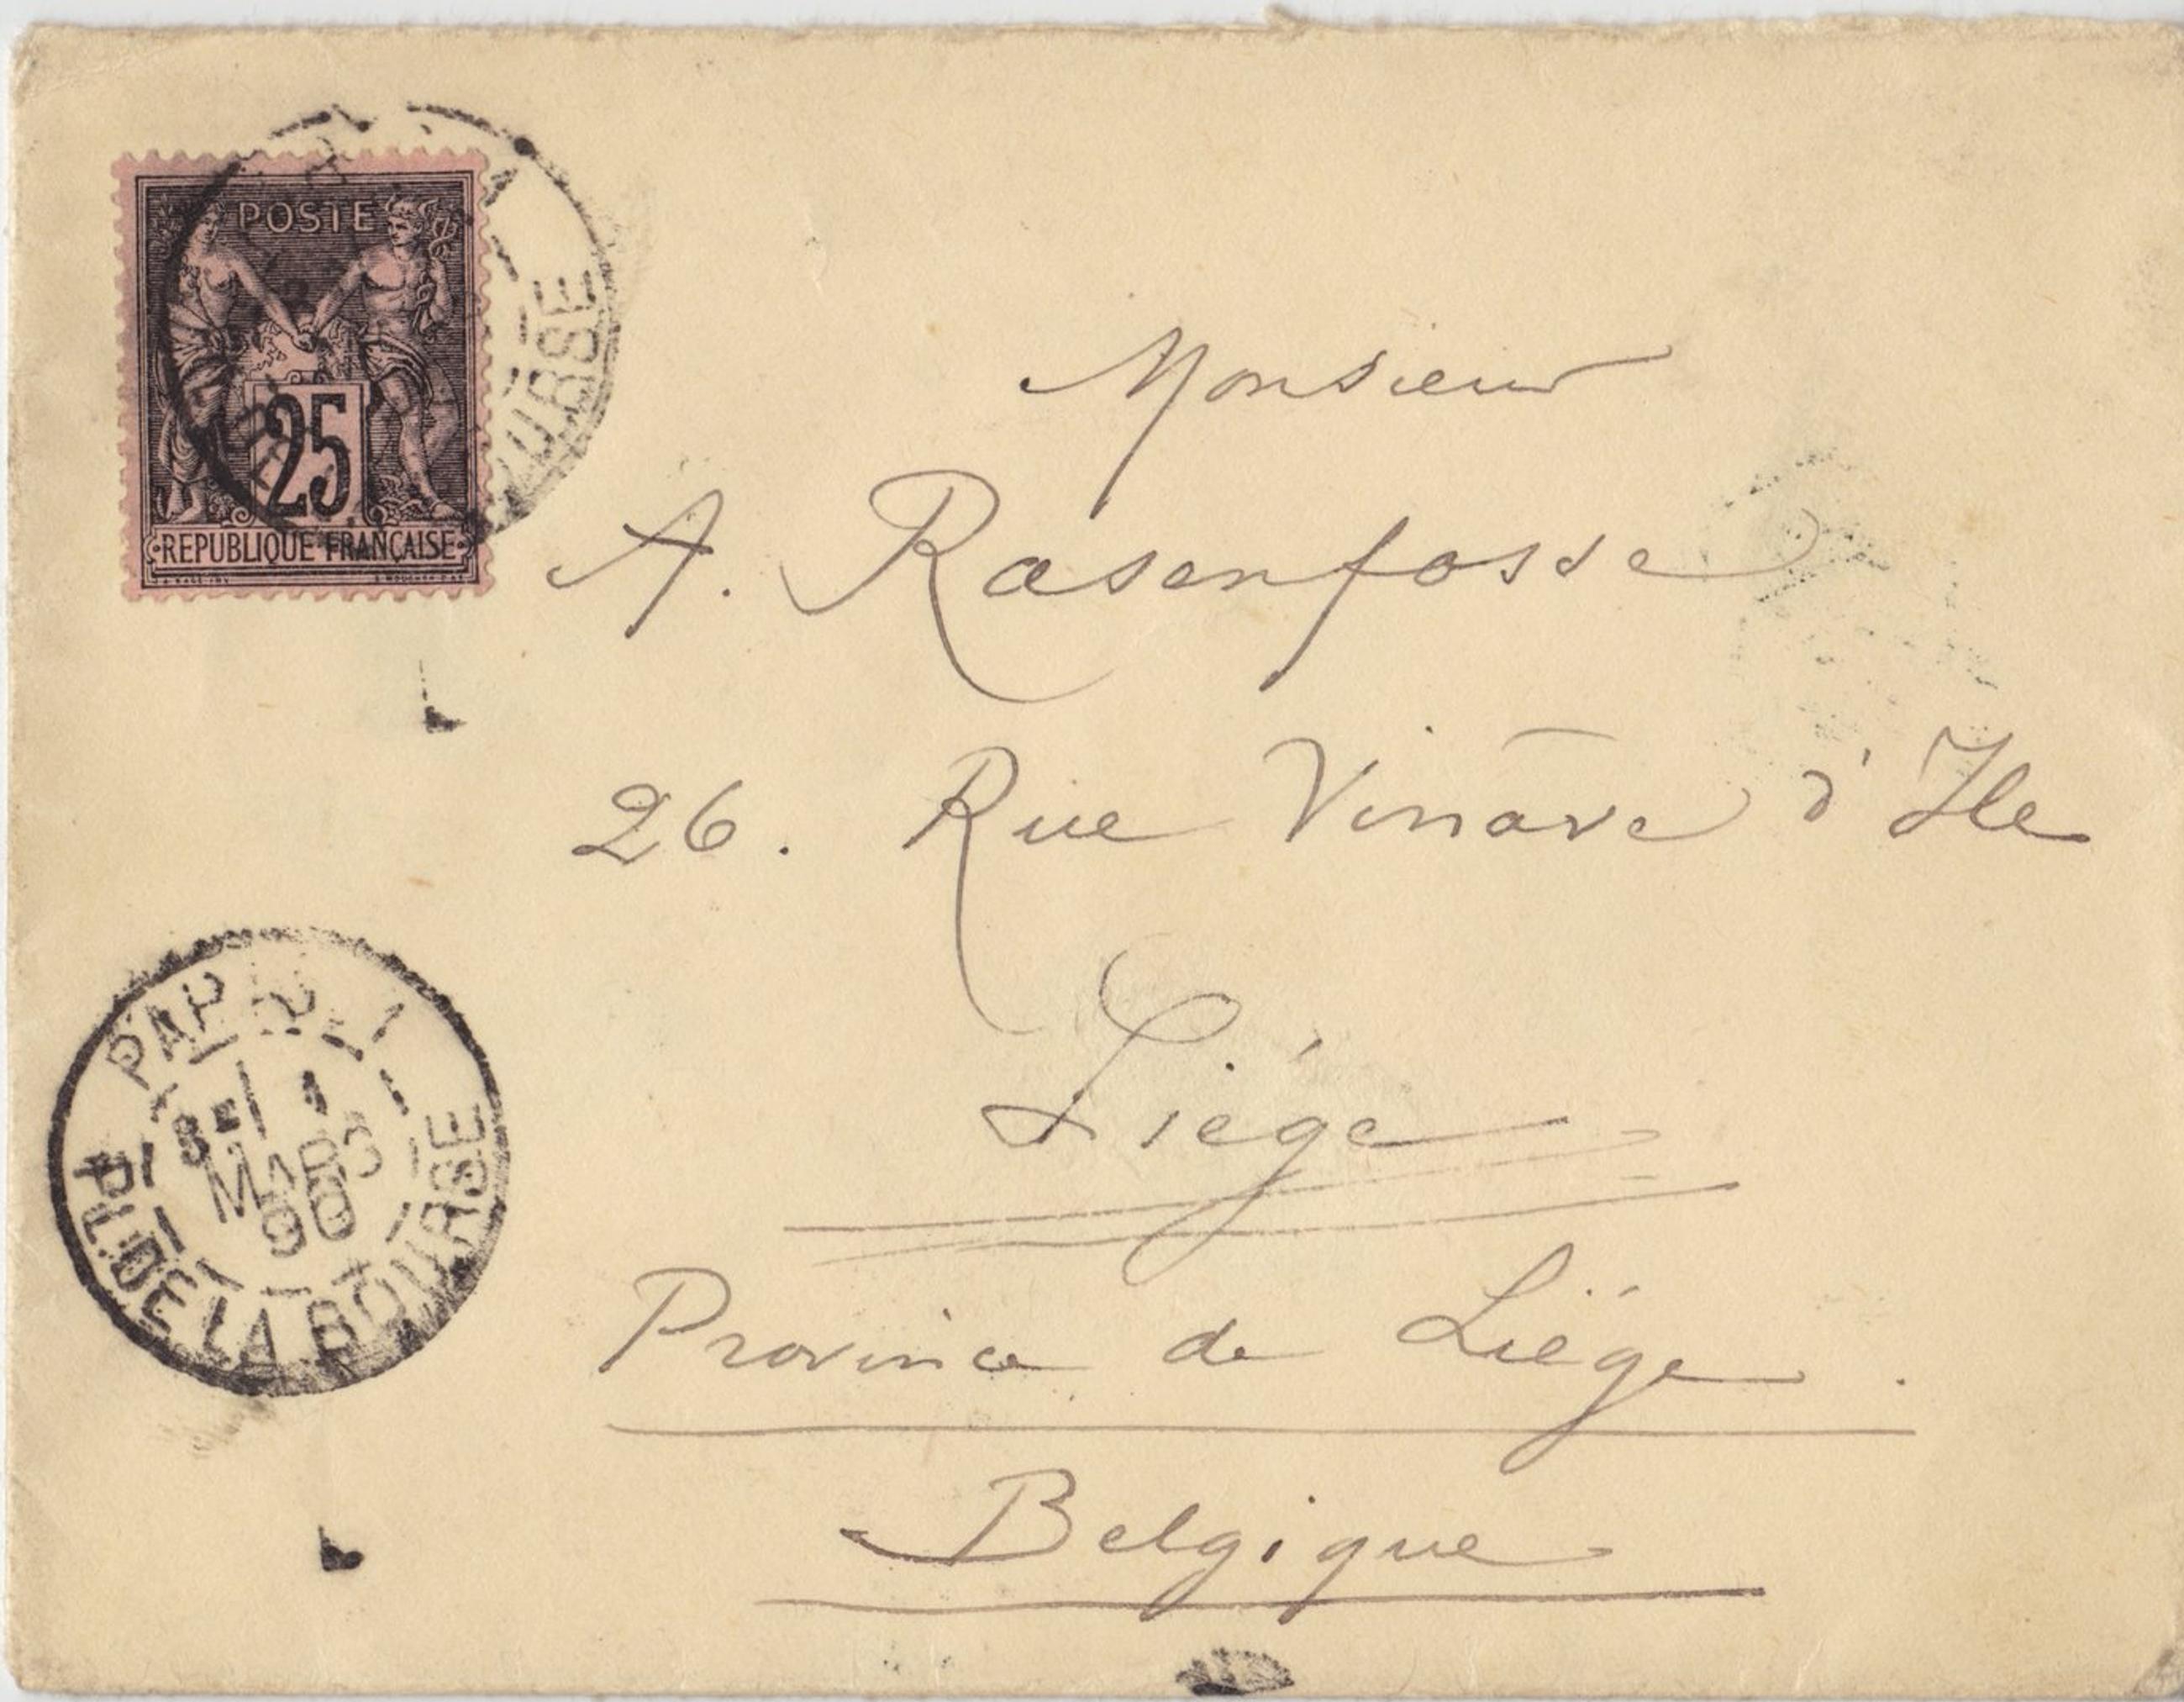 POSTE
25
REPUBLIQUE FRANÇAISE
BOURSE
Monsieur
A. Rasenfosse
26. Rue Vinâve d'Ile
Liége
Province de Liége.
Belgique
PARIS 1
8E 1
MARS
90
PL. DE LA BOURSE